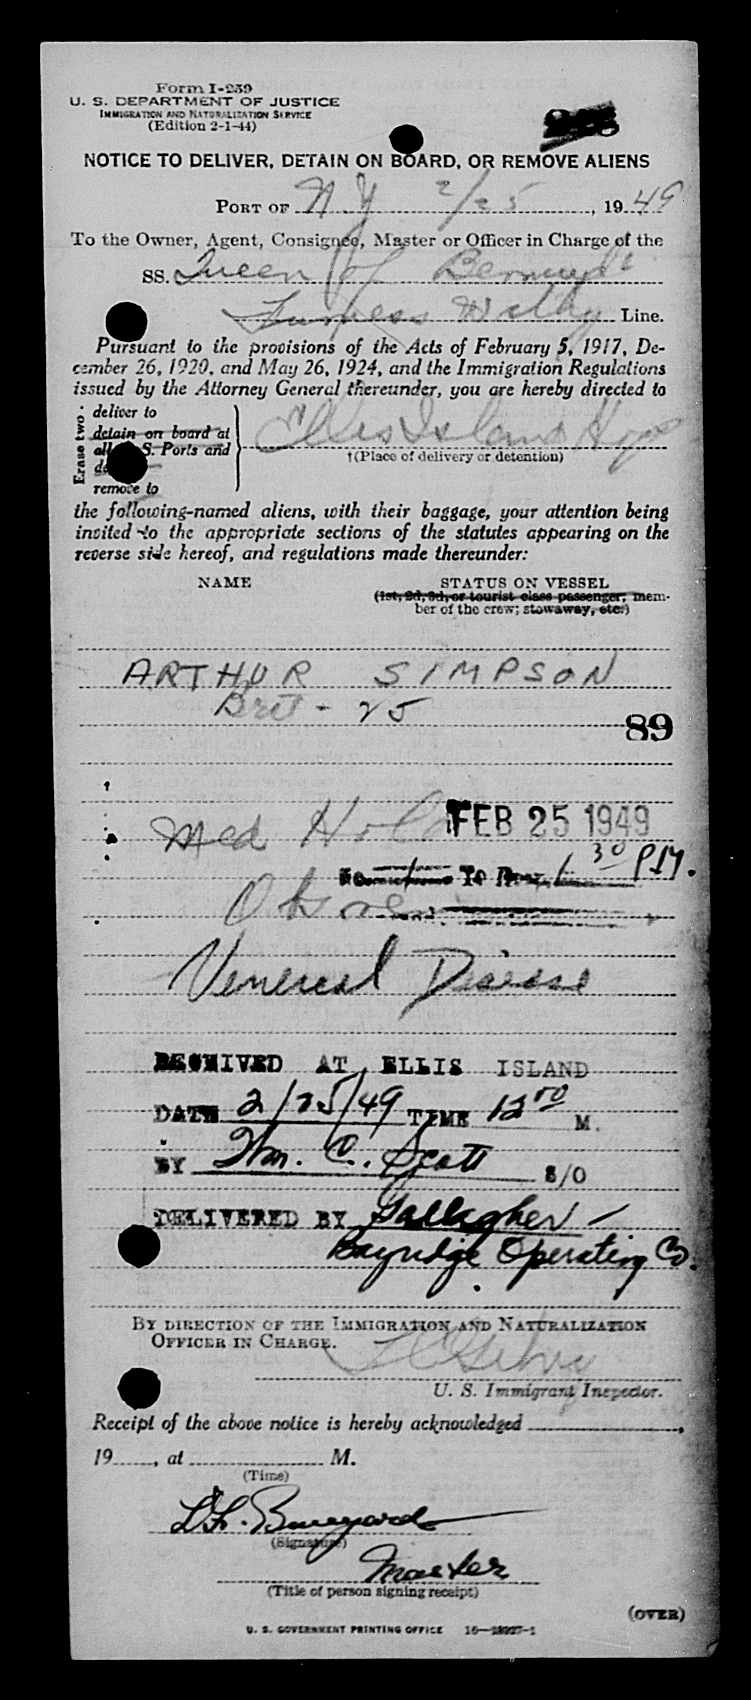 Form I-259
U. S. DEPARTMENT OF JUSTICE
IMMIGRATION AND NATURALIZATION SERVICE
(Edition 2-1-44)
NOTICE TO DELIVER, DETAIN ON BOARD, OR REMOVE ALIENS
PORT OF N.Y. 2/25, 1949
To the Owner, Agent, Consignee, Master or Officer in Charge of the
SS. Queen of Bermuda
Furness Withy Line.
Pursuant to the provisions of the Acts of February 5, 1917, De-
cember 26, 1920, and May 26, 1924, and the Immigration Regulations
issued by the Attorney General thereunder, you are hereby directed to
Erase two.
deliver to
detain on board at
all U. S. Ports and
remove to
Ellis Island Hosp
†(Place of delivery or detention)
the following-named aliens, with their baggage, your attention being
invited to the appropriate sections of the statutes appearing on the
reverse side hereof, and regulations made thereunder:
NAME STATUS ON VESSEL
(1st, 2d, 3d, or tourist class passenger; mem-
ber of the crew; stowaway, etc.)
ARTHUR SIMPSON
Brit - 25
89
Med Hold FEB 25 1949
1 30 P.M.
Obsv
Venereal Disease
RECEIVED AT ELLIS ISLAND
DATE 2/25/49 TIME 12 00 M.
BY Wm. C. Scott S/O
DELIVERED BY Gallagher -
Bayridge Operating Co.
BY DIRECTION OF THE IMMIGRATION AND NATURALIZATION
OFFICER IN CHARGE.
U. S. Immigrant Inspector.
Receipt of the above notice is hereby acknowledged ,
19 , at M.
(Time)
(Signature)
Master
(Title of person signing receipt)
(OVER)
U. S. GOVERNMENT PRINTING OFFICE